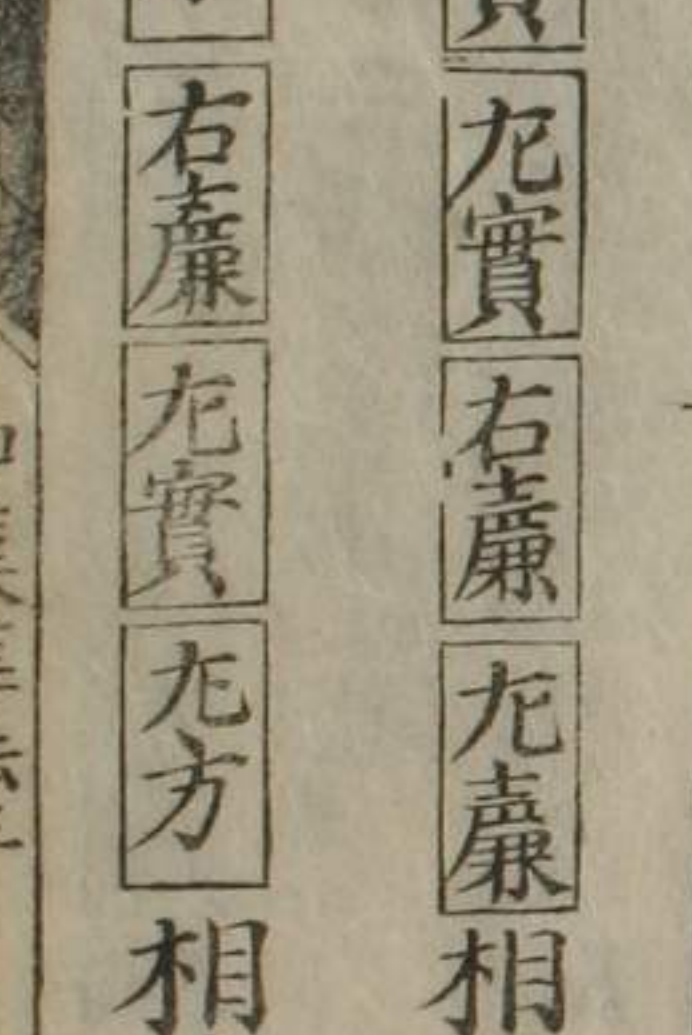 左實右廉左廉相
右廉左實左方相